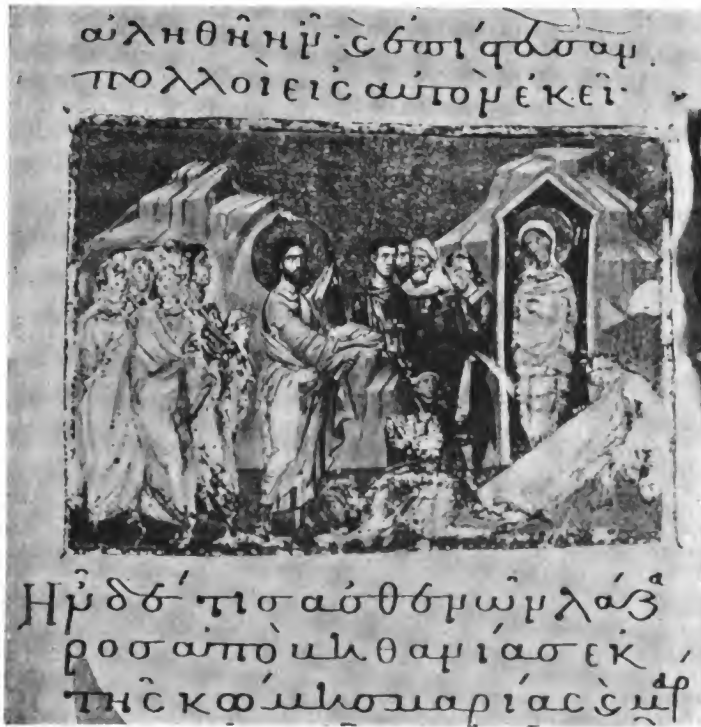 ἀληθῆ ἦν· ϗ ἐπίστευσαν
πολλοὶ εἰς αὐτὸν ἐκεῖ·
Ἦν δέ τις ἀσθενῶν λάζα
ρος ἀπὸ βηθανίας ἐκ
τῆς κώμης μαρίας ϗ μάρ